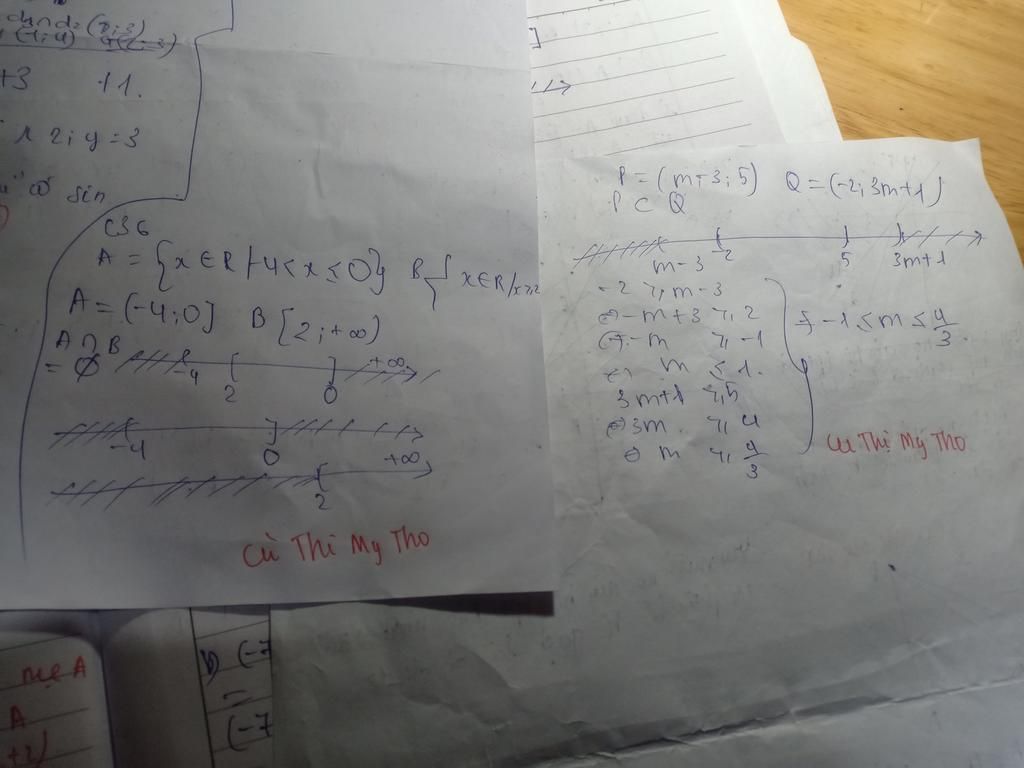 +3 +1.
2; y = 3
sin
C36
A = {x ∈ R / -4 < x ≤ 0} B { x ∈ R / x ≥ 2
A = (-4; 0] B [2; +∞)
A ∩ B
= ∅
-4 2 0 +∞
-4 0 +∞
2
Cù Thị Mỹ Tho
P = (m-3; 5) Q = (-2; 3m+1)
P ⊂ Q
m-3 -2 5 3m+1
-2 ≥ m-3
⇔ -m + 3 ≥ 2
⇔ -m ≥ -1
⇔ m ≤ 1.
3m+1 ≥ 5
⇔ 3m ≥ 4
⇔ m ≥ 4/3
-1 ≤ m ≤ 4/3.
Cù Thị Mỹ Tho
mẹ A
A
b) (-7
=
(-7